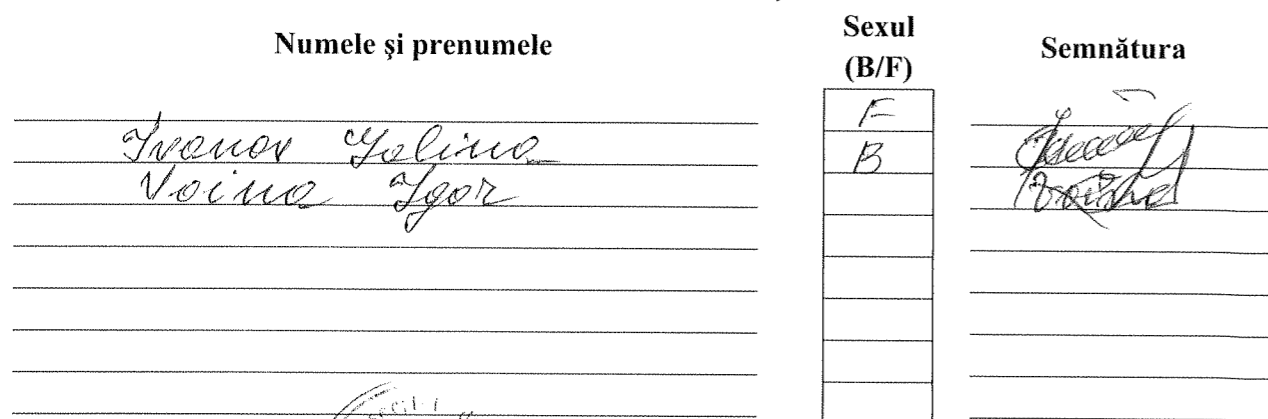 Numele şi prenumele
Sexul
(B/F)
Semnătura
Ivanov Galina F
Voina Igor B